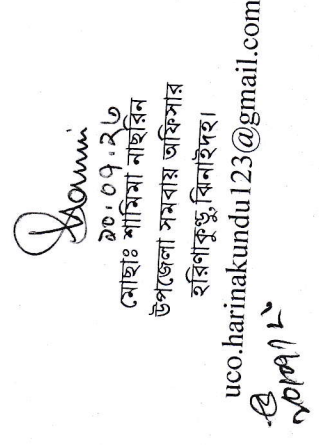 ২০.০৭.২৬
মোছাঃ শামিমা নাছরিন
উপজেলা সমবায় অফিসার
হরিণাকুন্ডু, ঝিনাইদহ।
uco.harinakundu123@gmail.com